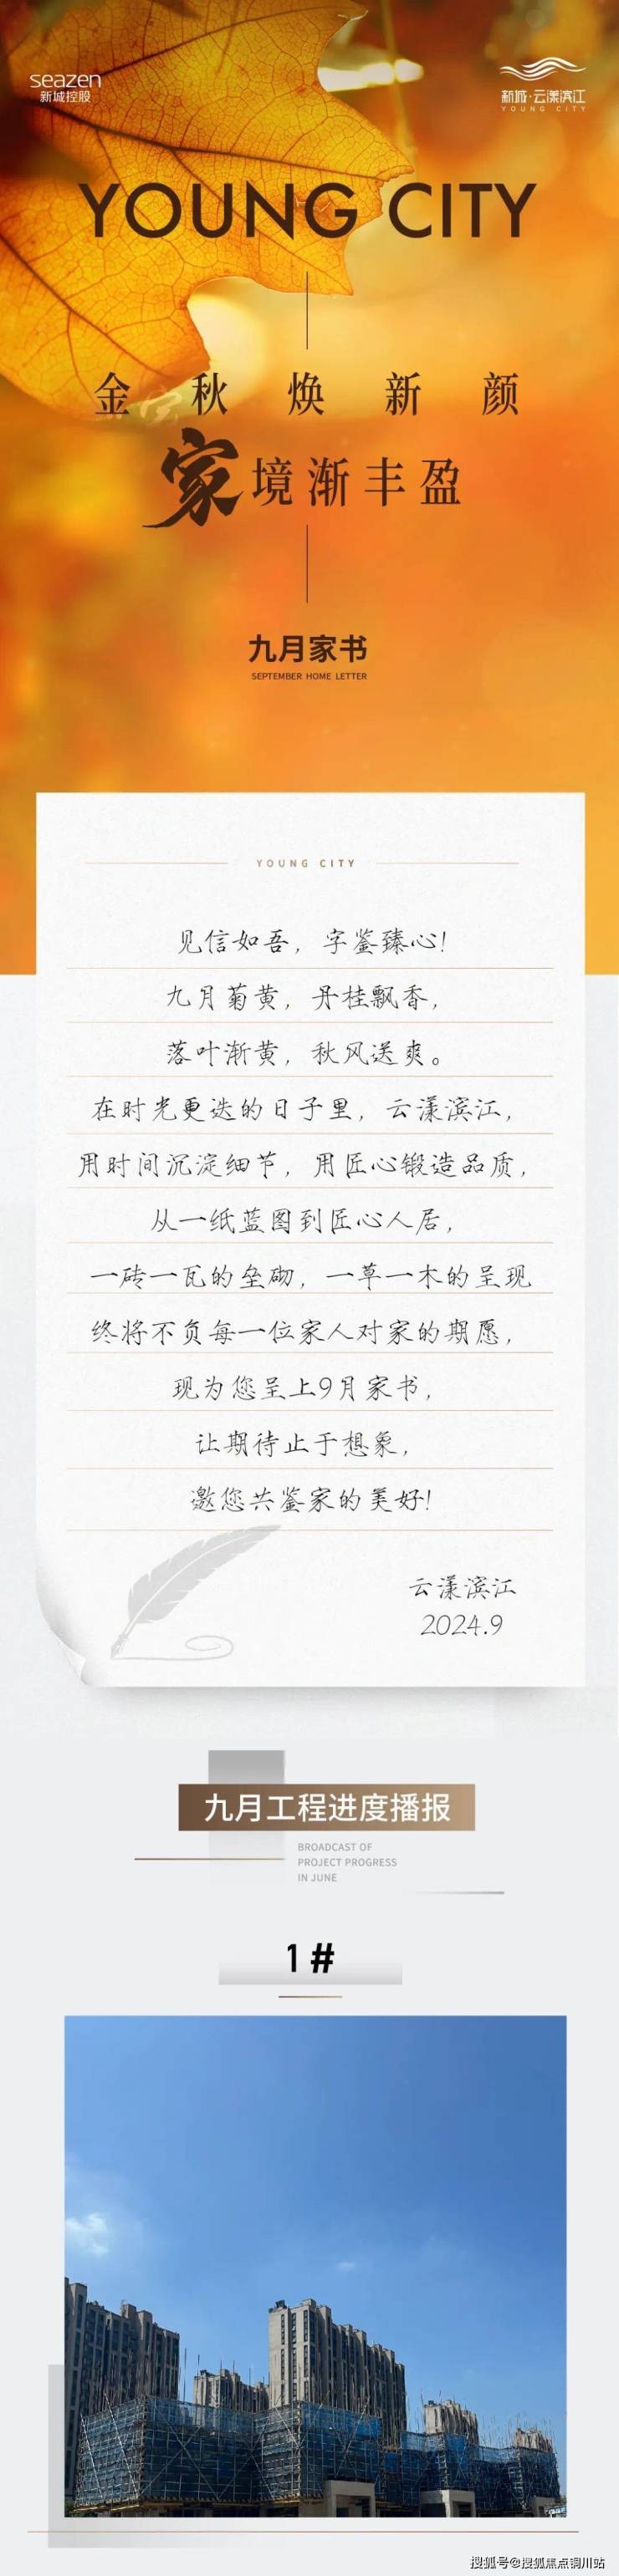 seazen
新城控股
新城·云漾滨江
YOUNG CITY
YOUNG CITY
金秋焕新颜
家境渐丰盈
九月家书
SEPTEMBER HOME LETTER
YOUNG CITY
见信如吾，字鉴臻心！
九月菊黄，丹桂飘香，
落叶渐黄，秋风送爽。
在时光更迭的日子里，云漾滨江，
用时间沉淀细节，用匠心锻造品质，
从一纸蓝图到匠心人居，
一砖一瓦的垒砌，一草一木的呈现
终将不负每一位家人对家的期愿，
现为您呈上9月家书，
让期待止于想象，
邀您共鉴家的美好！
云漾滨江
2024.9
九月工程进度播报
BROADCAST OF
PROJECT PROGRESS
IN JUNE
1#
搜狐号@搜狐焦点铜川站